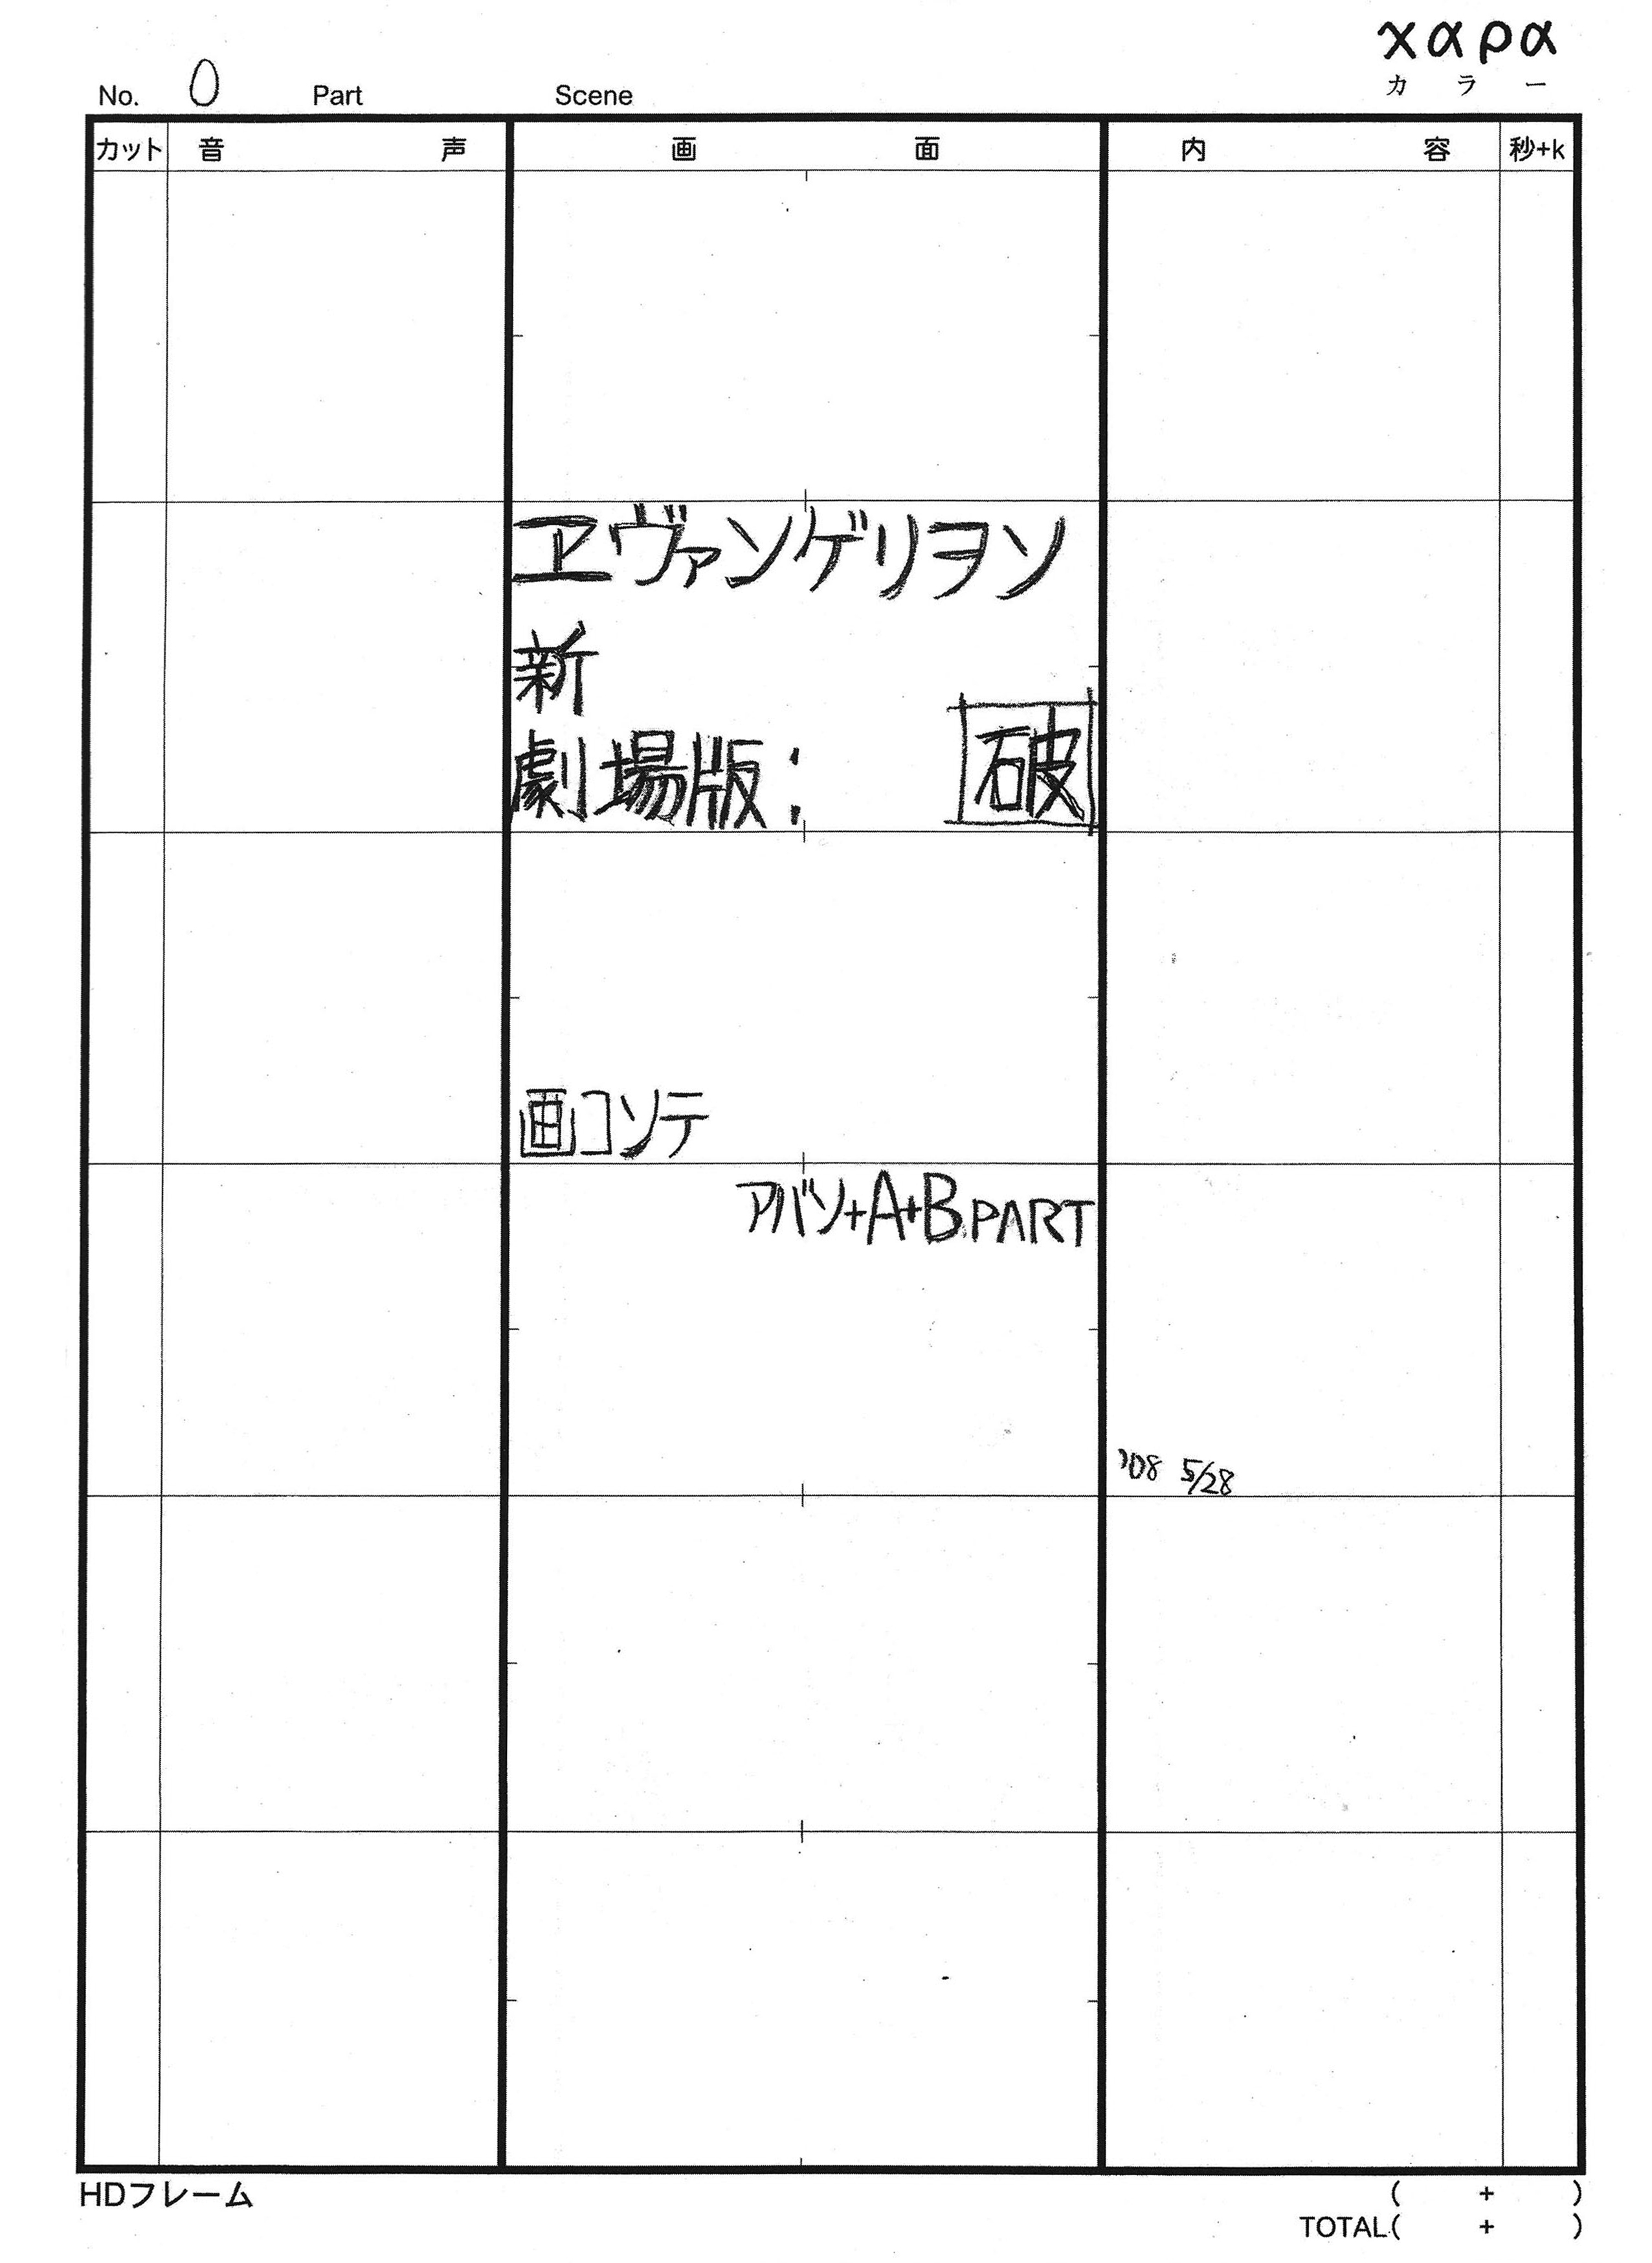 χαρα
カラー
No. 0 Part Scene
カット 音声 画面 内容 秒+k
ヱヴァンゲリヲン
新
劇場版: 破
画コンテ
アバン+A+B.PART
'08 5/28
HDフレーム
( + )
TOTAL( + )